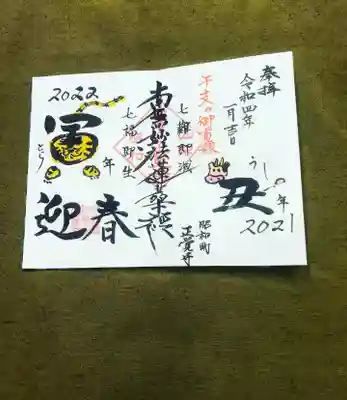 奉拝
令和四年
一月吉日
うしの年
丑
2021
干支の御首題
七難即滅
昭和町
正覚寺
南無妙法蓮華経
七福即生
2022
寅
とら
年
迎春